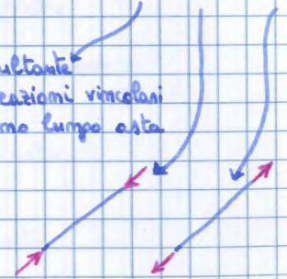 ultante
eazioni vincolari
no lungo asta